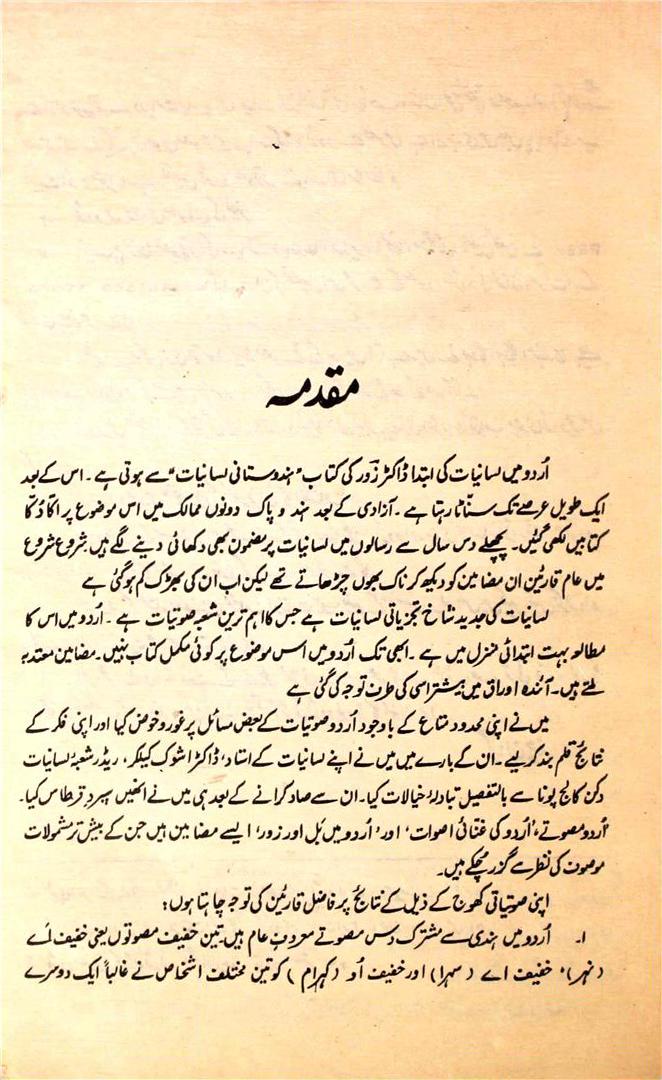 مقدمہ
اُردو میں لسانیات کی ابتدا ڈاکٹر زور کی کتاب "ہندوستانی لسانیات" سے ہوتی ہے۔ اس کے بعد
ایک طویل عرصے تک سنّاٹا رہتا ہے۔ آزادی کے بعد ہند و پاک دونوں ممالک میں اس موضوع پر اکّا دُکّا
کتابیں لکھی گئیں۔ پچھلے دس سال سے رسالوں میں لسانیات پر مضمون بھی دکھائی دینے لگے ہیں۔ شروع شروع
میں عام قارئین ان مضامین کو دیکھ کر ناک بھوں چڑھاتے تھے لیکن اب ان کی بھڑک کم ہو گئی ہے
لسانیات کی جدید شاخ تجزیاتی لسانیات ہے جس کا اہم ترین شعبہ صوتیات ہے۔ اُردو میں اس کا
مطالعہ بہت ابتدائی منزل میں ہے۔ ابھی تک اُردو میں اس موضوع پر کوئی مکمل کتاب نہیں۔ مضامین معتدبہ
ملتے ہیں۔ آئندہ اوراق میں بیشتر اسی کی طرف توجہ کی گئی ہے
میں نے اپنی محدود متاع کے باوجود اُردو صوتیات کے بعض مسائل پر غور و خوض کیا اور اپنی فکر کے
نتائج قلم بند کر لیے۔ ان کے بارے میں میں نے اپنے لسانیات کے استاد ڈاکٹر اشوک کیلکر، ریڈر شعبۂ لسانیات
دکن کالج پونا سے بالتفصیل تبادلۂ خیالات کیا۔ ان سے صاد کرانے کے بعد ہی میں نے انھیں سپردِ قرطاس کیا۔
'اُردو مصوتے'، 'اُردو کی غنائی اصوات' اور 'اُردو میں بَل اور زور' ایسے مضامین ہیں جن کے بیش تر مشمولات
موصوف کی نظر سے گزر چکے ہیں۔
اپنی صوتیاتی کھوج کے ذیل کے نتائج پر فاضل قارئین کی توجہ چاہتا ہوں:
۱۔ اُردو میں ہندی سے مشترک دس مصوتے معروفِ عام ہیں۔ تین خفیف مصوتوں یعنی خفیف اَے
(نہر)، خفیف اے (سہرا) اور خفیف اُو (کہرام) کو تین مختلف اشخاص نے غالباً ایک دوسرے